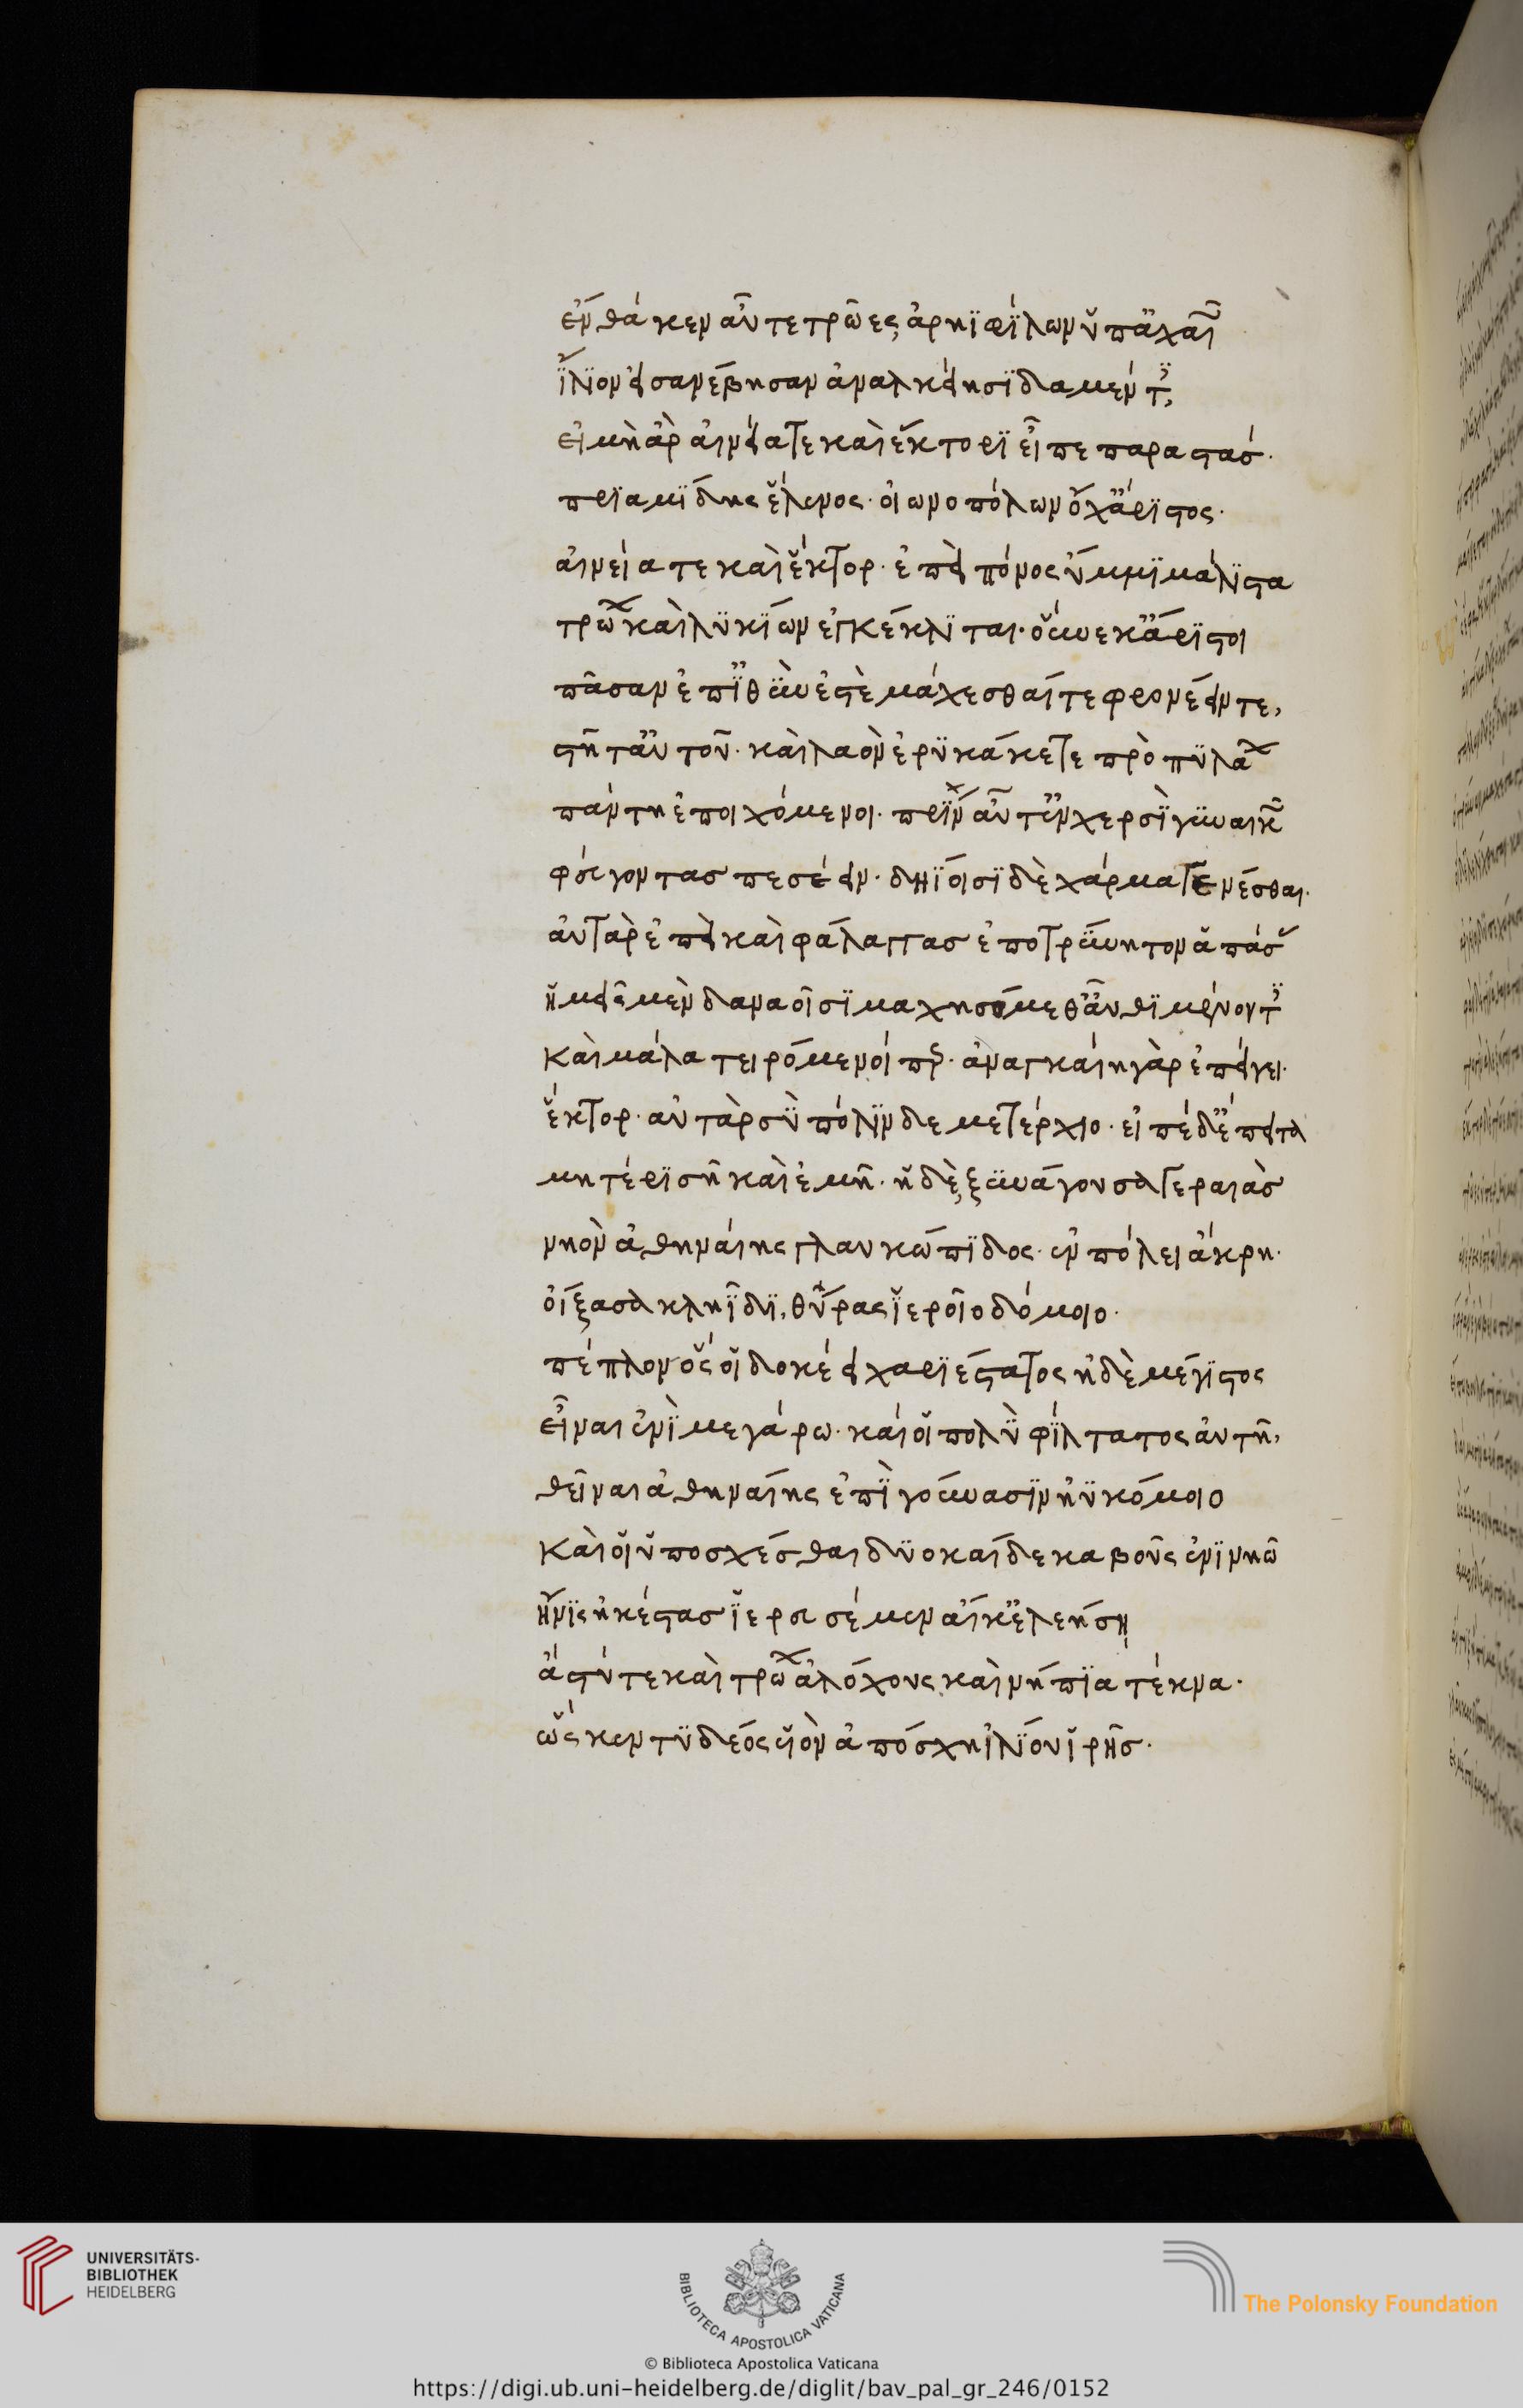 ἔνθά κεν αὖτε τρῶες ἀρηϊφίλων ὑπ' ἀχαιῶν
ἴλιον εἰσανέβησαν ἀναλκείησι δαμέντες,
εἰ μὴ ἂρ αἰνείατε καὶ ἕκτορι εἶπε παραστάσ.
πριαμίδης ἕλενος. οἰωνοπόλων ὄχ' ἄριστος.
αἰνεία τε καὶ ἕκτορ. ἐπεὶ πόνος ὔμμι μάλιστα
τρώων καὶ λυκίων ἐγκέκλιται. οὕνεκ' ἄριστοι
πᾶσαν ἐπ' ἰθύν ἐστὲ μάχεσθαί τε φρονέειν τε,
στῆτ' αὐτοῦ. καὶ λαὸν ἐρυκάκετε πρὸ πυλάων
πάντη ἐποιχόμενοι. πρὶν αὖτ' ἐν χερσὶ γυναικῶν
φεύγοντας πεσέειν. δηΐοισι δὲ χάρμα γενέσθαι.
αὐτὰρ ἐπεὶ καὶ φάλαγγας ἐποτρύνητον ἁπάσας
ἡμεῖς μὲν δαναοῖσι μαχησόμεθ' αὖθι μένοντες
καὶ μάλα τειρόμενοί περ. ἀναγκαίη γὰρ ἐπείγει.
ἕκτορ. αὐτὰρ σὺ πόλιν δε μετέρχεο. εἰπὲ δ' ἔπειτα
μητέρι σῆ καὶ ἐμῆ. ἡ δὲ ξυνάγουσα γεραιὰς
νηὸν ἀθηναίης γλαυκώπιδος. ἐν πόλει ἄκρη.
οἴξασα κληῗδι, θύρας ἱεροῖο δόμοιο.
πέπλον ὅς οἱ δοκέει χαριέστατος ἠδὲ μέγιστος
εἶναι ἐνὶ μεγάρω. καί οἱ πολὺ φίλτατος αὐτῆ,
θεῖναι ἀθηναίης ἐπὶ γούνασιν ἠϋκόμοιο
καί οἱ ὑποσχέσθαι δυοκαίδεκα βοῦς ἐνὶ νηῶ
ἤνις ἠκέστας ἱερευσέμεν αἴ κ' ἐλεήση
ἄστύ τε καὶ τρώων ἀλόχους καὶ νήπια τέκνα.
ὥς κεν τυδέος υἱὸν ἀπόσχη ἰλίου ἱρῆς.
UNIVERSITÄTS-
BIBLIOTHEK
HEIDELBERG
BIBLIOTECA APOSTOLICA VATICANA
The Polonsky Foundation
© Biblioteca Apostolica Vaticana
https://digi.ub.uni-heidelberg.de/diglit/bav_pal_gr_246/0152